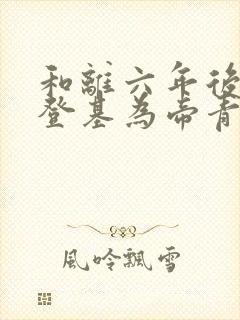 和離六年後
登基為帝青
風吟飄雪